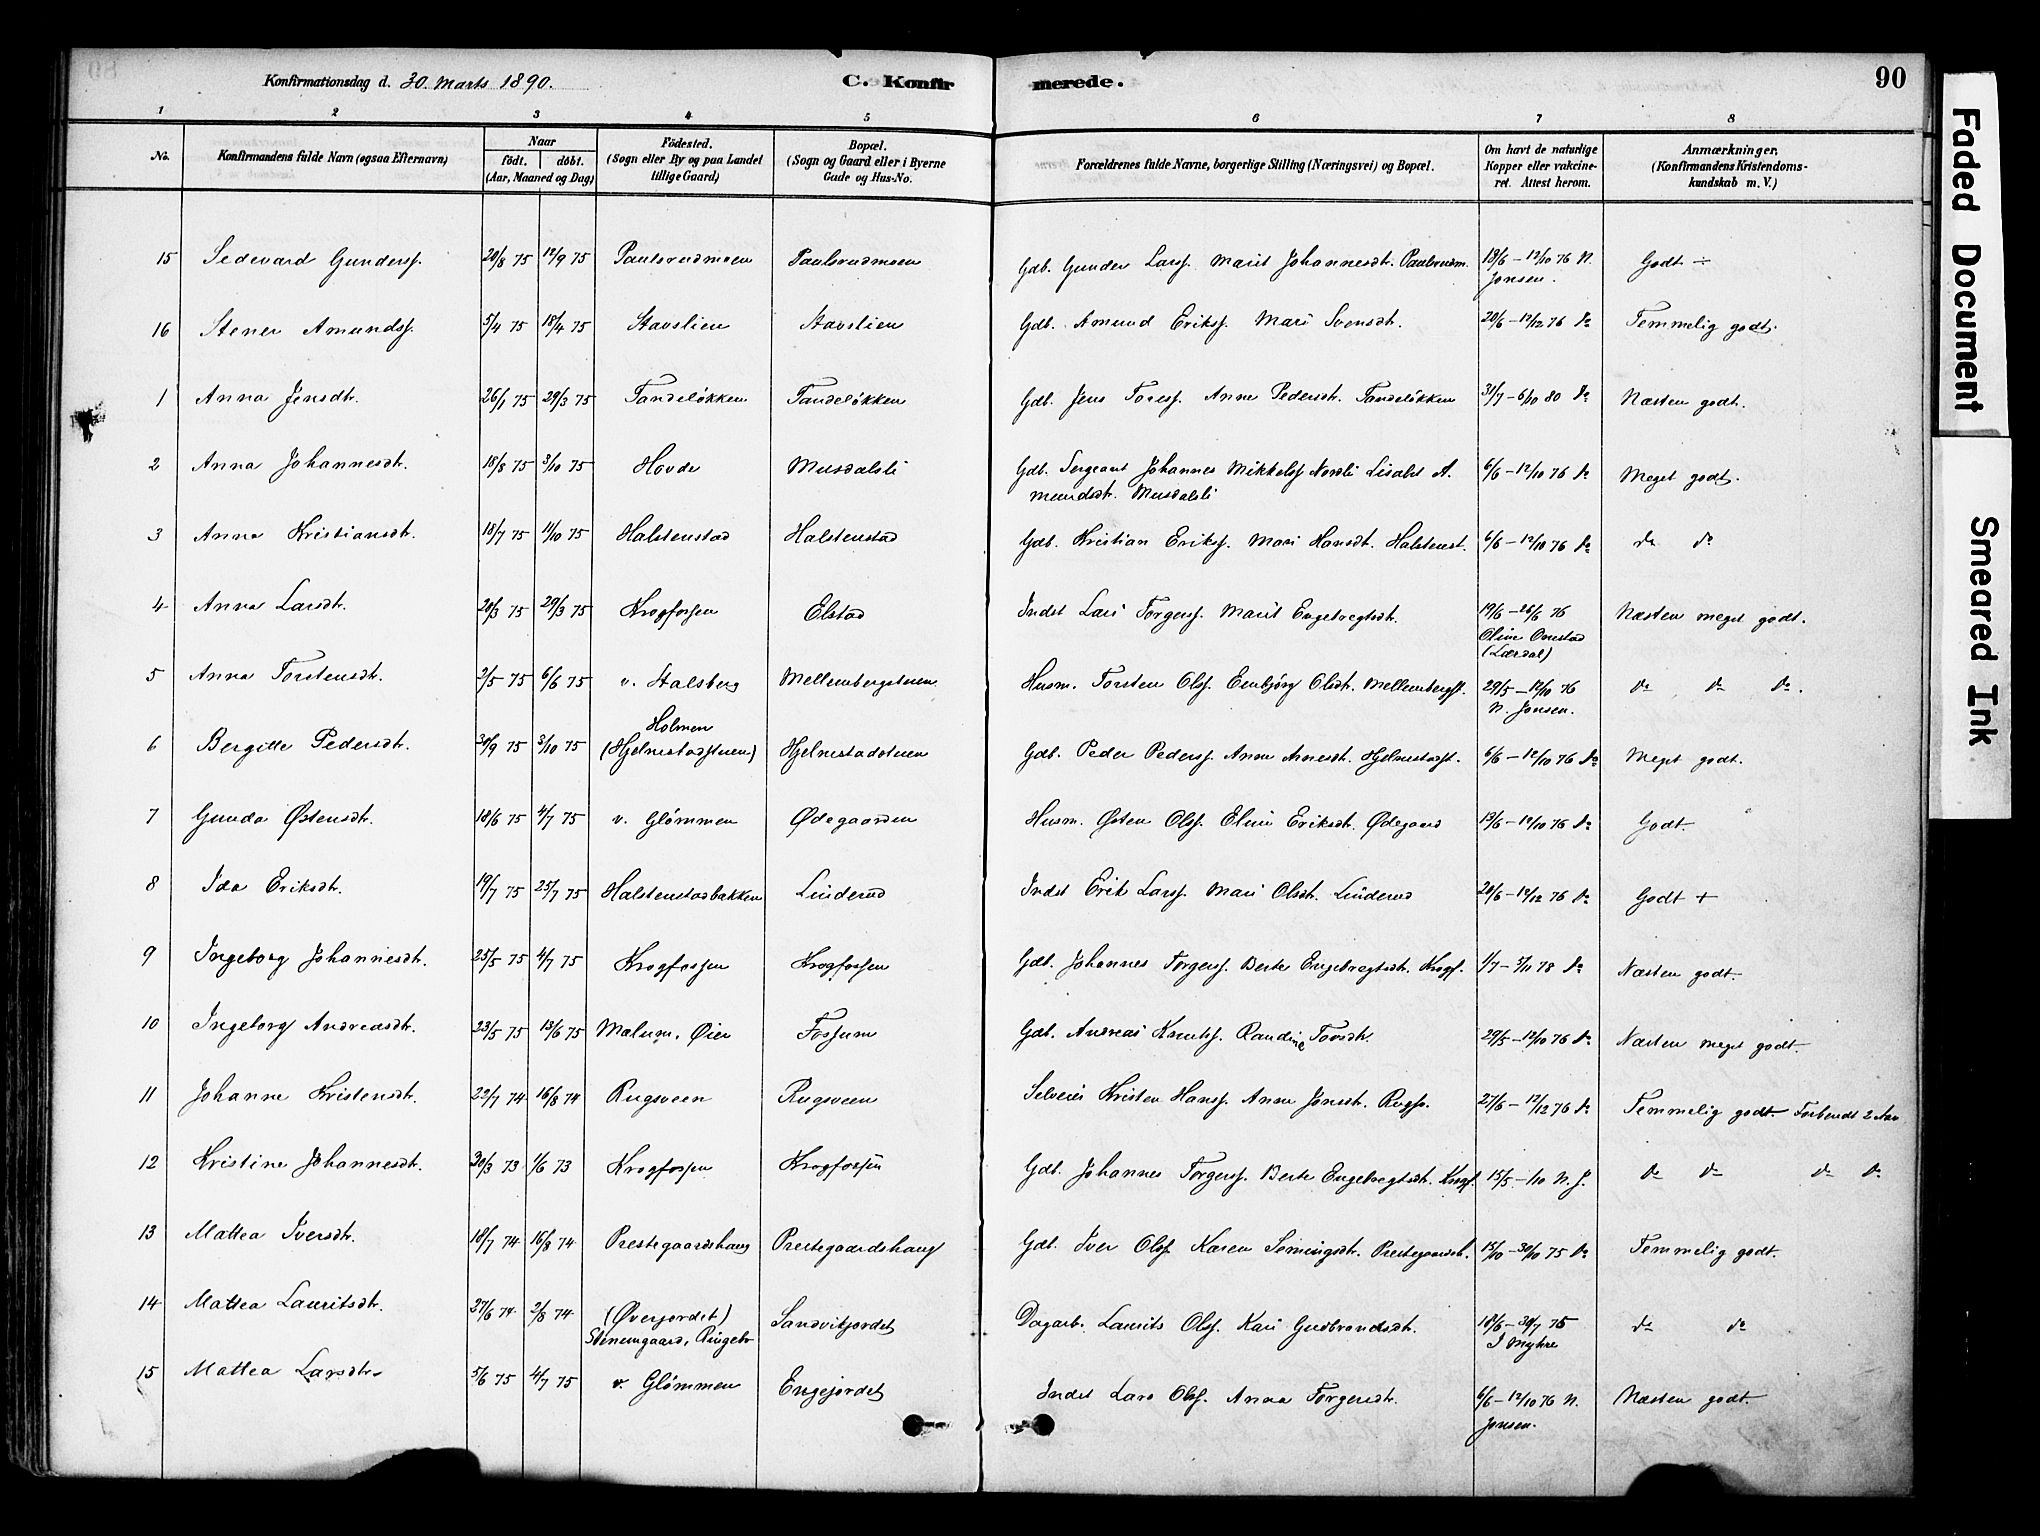 Konfirmationsdag d. 30. Marts 1890. C. Konfir merede. 90
1 2 3 4 5 6 7 8
No. Konfirmandens fulde Navn (ogsaa Efternavn) Naar født. døbt. (Aar, Maaned og Dag) Fødested. (Sogn eller By og paa Landet tillige Gaard) Bopæl. (Sogn og Gaard eller i Byerne Gade og Hus-No. Forældrenes fulde Navne, borgerlige Stilling (Næringsvei) og Bopæl. Om havt de naturlige Kopper eller vakcineret. Attest herom. Anmærkninger, (Konfirmandens Kristendomskundskab m. V.)
15 Sedevard Gunderss. 20/8 75 12/9 75 Paulsrudmoen Paulsrudmoen Gdb. Gunder Larss. Marit Johannesdt. Paulsrudm. 19/6 - 12/10 76 N. Jonsen. Godt ÷
16 Stener Amundss. 5/4 75 18/4 75 Stavslien Stavslien Gdb. Amund Erikss. Mari Svensdt. 20/6 - 12/12 76 do Temmelig godt.
1 Anna Jensdt. 26/1 75 29/3 75 Tandeløkken Tandeløkken Gdb. Jens Toress. Anne Pedersdt. Tandeløkken 31/7 - 6/10 80 do Næsten godt.
2 Anna Johannesdt. 18/8 75 3/10 75 Hovde Musdalsli Gdb. Sergeant Johannes Mikkelss. Nordli Lisabet A.
mundsdt. Musdalsli 6/6 - 12/10 76 do Meget godt.
3 Anna Kristiansdt. 18/7 75 11/10 75 Halstenstad Halstenstad Gdb. Kristian Erikss. Mari Hansdt. Halstenst. 6/6 - 12/10 76 do do do
4 Anna Larsdt. 20/3 75 29/3 75 Krogfossen Elstad Indst Lars Torgerss. Marit Engebregtsdt. 19/6 - 26/6 76 Oline Onstad (Lærdal) Næsten meget godt.
5 Anna Torstensdt. 2/5 75 6/6 75 v. Stalsberg Mellembergstuen Husm. Torsten Olss. Embjørg Olsdt. Mellembergst. 29/5 - 12/10 76 N. Jonsen. do do do.
6 Bergitte Pedersdt. 30/9 75 3/10 75 Holmen (Hjelmestadstuen) Hjelmestadstuen Gdb. Peder Pederss. Anne Arnesdt. Hjelmestadst. 6/6 - 12/10 76 do Meget godt.
7 Gunda Østensdt. 18/6 75 4/7 75 v. Glømmen Ødegaarden Husm. Østen Olss. Eline Eriksdt. Ødegaard 19/6 - 12/10 76 do Godt.
8 Ida Eriksdt. 19/7 75 25/7 75 Halstenstadbakken Linderud Indst Erik Larss. Mari Olsdt. Linderud 20/6 - 12/12 76 do Godt +
9 Ingeborg Johannesdt. 25/5 75 4/7 75 Krogfossen Krogfossen Gdb. Johannes Torgerss. Berte Engebregtsdt. Krogf. 1/7 - 5/11 78 do Næsten godt.
10 Ingeborg Andreasdt. 23/5 75 13/6 75 Mælum, Øier Fossum Gdb. Andreas Knutss. Randine Torsdt. 29/5 - 12/10 76 do Næsten meget godt.
11 Johanne Kristensdt. 22/7 74 16/8 74 Rugsveen Rugsveen Selveier Kristen Hanss. Anne Jonsdt. Rugsv. 27/6 - 12/12 76 do Temmelig godt. Forberedt 2 Aar
12 Kristine Johannesdt. 30/3 73 1/6 73 Krogfossen Krogfossen Gdb. Johannes Torgerss. Berte Engebregtsdt. Krogf. 15/5 - 1/10 N. J. do do do do
13 Mattea Iversdt. 18/7 74 16/8 74 Prestegaardshaug Prestegaardshaug Gdb. Iver Olss. Karen Semingsdt. Prestegaardsh. 15/10 - 30/10 75 do Temmelig godt.
14 Mattea Lauritsdt. 27/6 74 2/8 74 (Øverjordet) Stenumgaard, Ringebu Sandvikjordet Dagarb. Laurits Olss. Kari Gudbrandsdt. 18/6 - 30/7 75 J Myhre do do
15 Mattea Larsdt. 5/6 75 4/7 75 v. Glømmen Engejordet Indst Lars Olss. Anna Torgersdt. 6/6 - 12/10 76 N. Jonsen. Næsten godt.
Faded Document
Smeared Ink